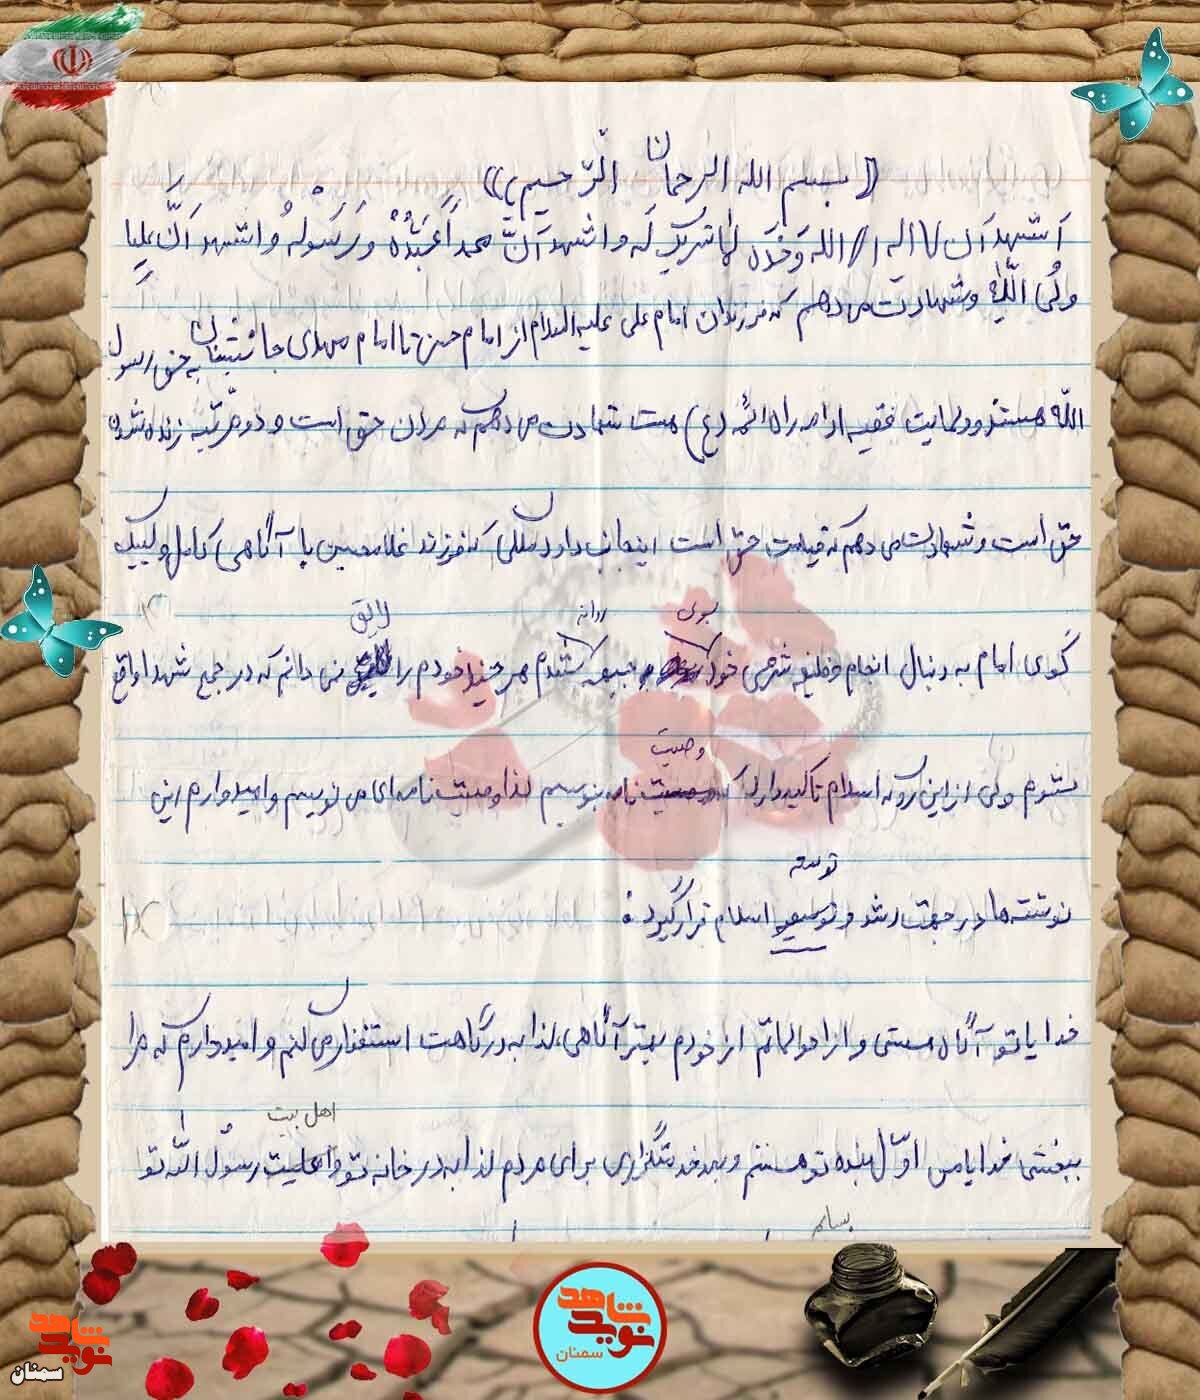 ((بسم الله الرحمان الرّحیم))
اَشهد اَن لا اله الا الله وَحْدَه لا شریک لَه و اشهد اَنَّ محمداً عَبْدُهُ و رَسَوْلهُ و اشهد اَنَّ علیاً
ولیُ اللّه و شهادت می دهم که فرزندان امام علی علیه السلام از امام حسن تا امام مهدی جانشینان به حق رسول
اللّه هستند و ولایت فقیه ادامه راه ائمه (ع) هست شهادت می دهم که مردن حق است و دو مرتبه زنده شدن
حق است و شهادت می دهم که قیامت حق است اینجانب داود فرزند غلامحسین با آگاهی کامل و لبیک
بسوی روانه لایق
گوی امام به دنبال انجام وظیفه شرعی خود جبهه گشتم هر چند خودم را نمی دانم که در جمع شهدا واقع
وصیت
شوم ولی از این رو که اسلام تاکید دارد که نامه بنویسیم لذا وصیت نامه ای می نویسم و امیدوارم این
توسعه
نوشته ها در جهت رشد و توسیعه اسلام قرار گیرد:
خدایا تو آگاه هستی و از احوالاتم از خودم بهتر آگاهی، لذا به درگاهت استغفار می کنم و امیدوارم که مرا
اهل بیت
ببخشی خدایا من اوّل بنده تو هستم و بعد خدمتگزاری برای مردم لذا به در خانه تو و اهلیت رسوُل اللّه تو
نوید شاهد
سمنان
نوید شاهد
سمنان